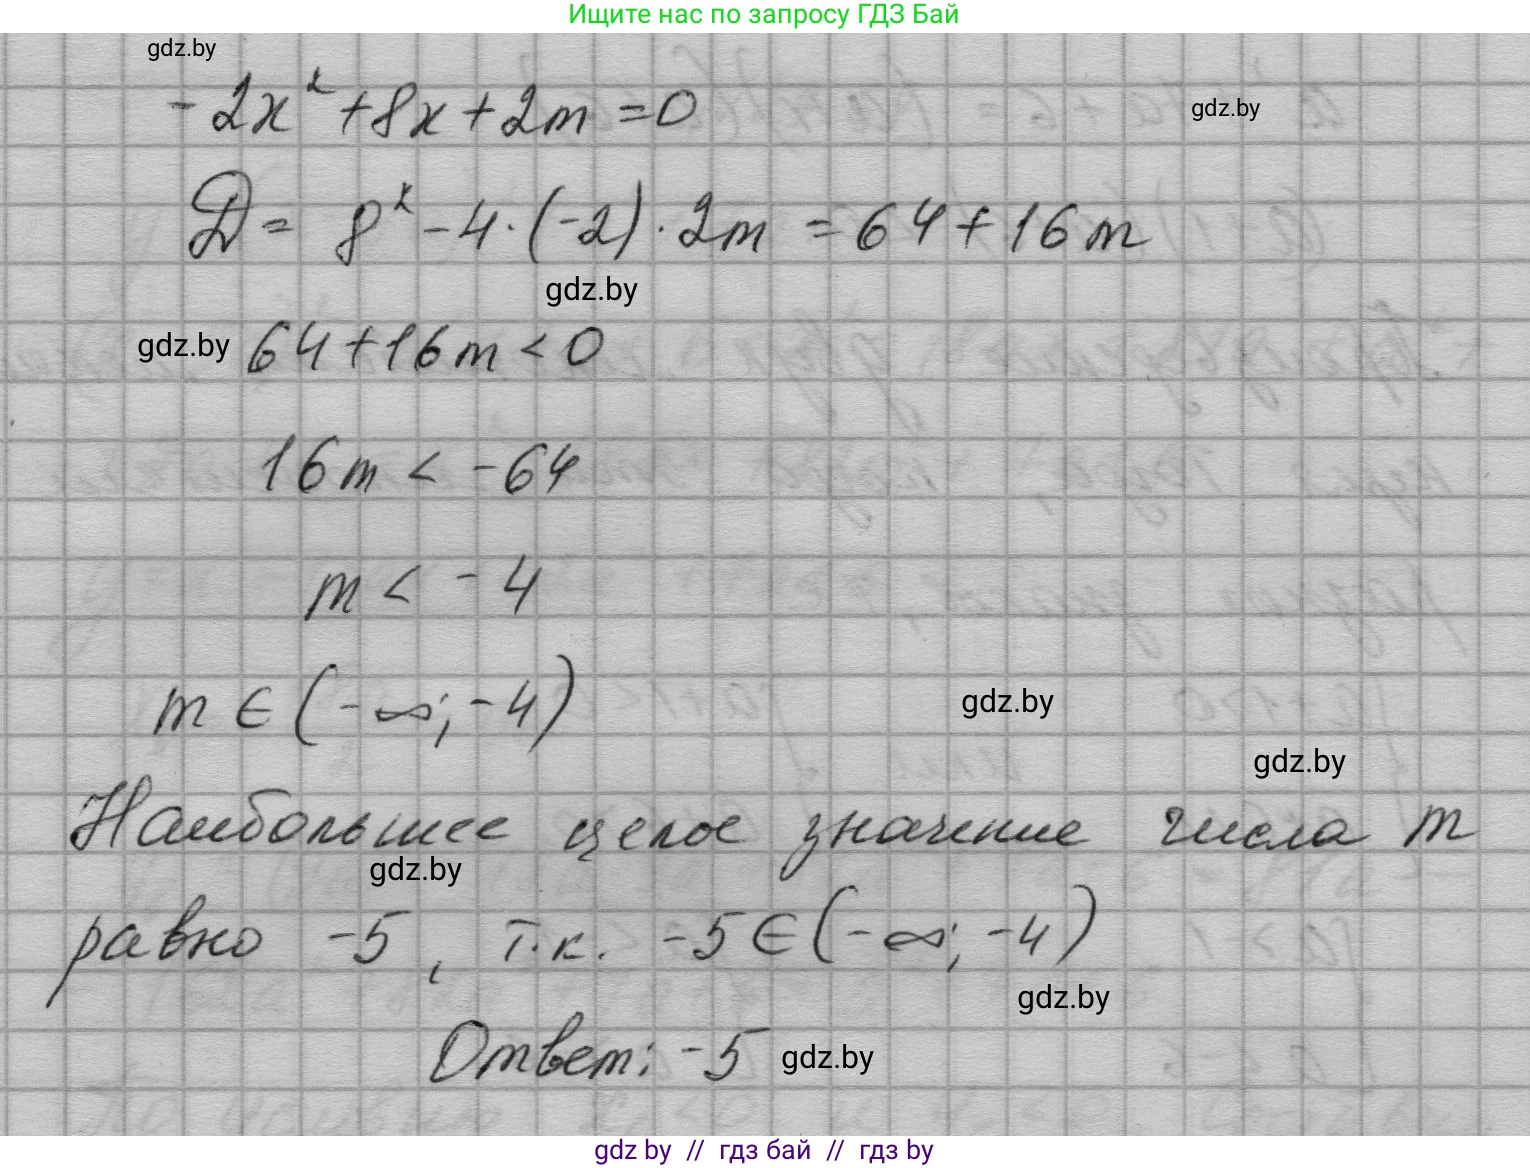 Ищите нас по запросу ГДЗ Бай
gdz.by
-2x² + 8x + 2m = 0
gdz.by
D = 8² - 4 · (-2) · 2m = 64 + 16m
gdz.by
gdz.by
64 + 16m < 0
16m < -64
m < -4
m ∈ (-∞; -4)
gdz.by
gdz.by
Наибольшее целое значение числа m
gdz.by
равно -5, т.к. -5 ∈ (-∞; -4)
gdz.by
Ответ: -5
gdz.by
gdz by // гдз бай // гдз by